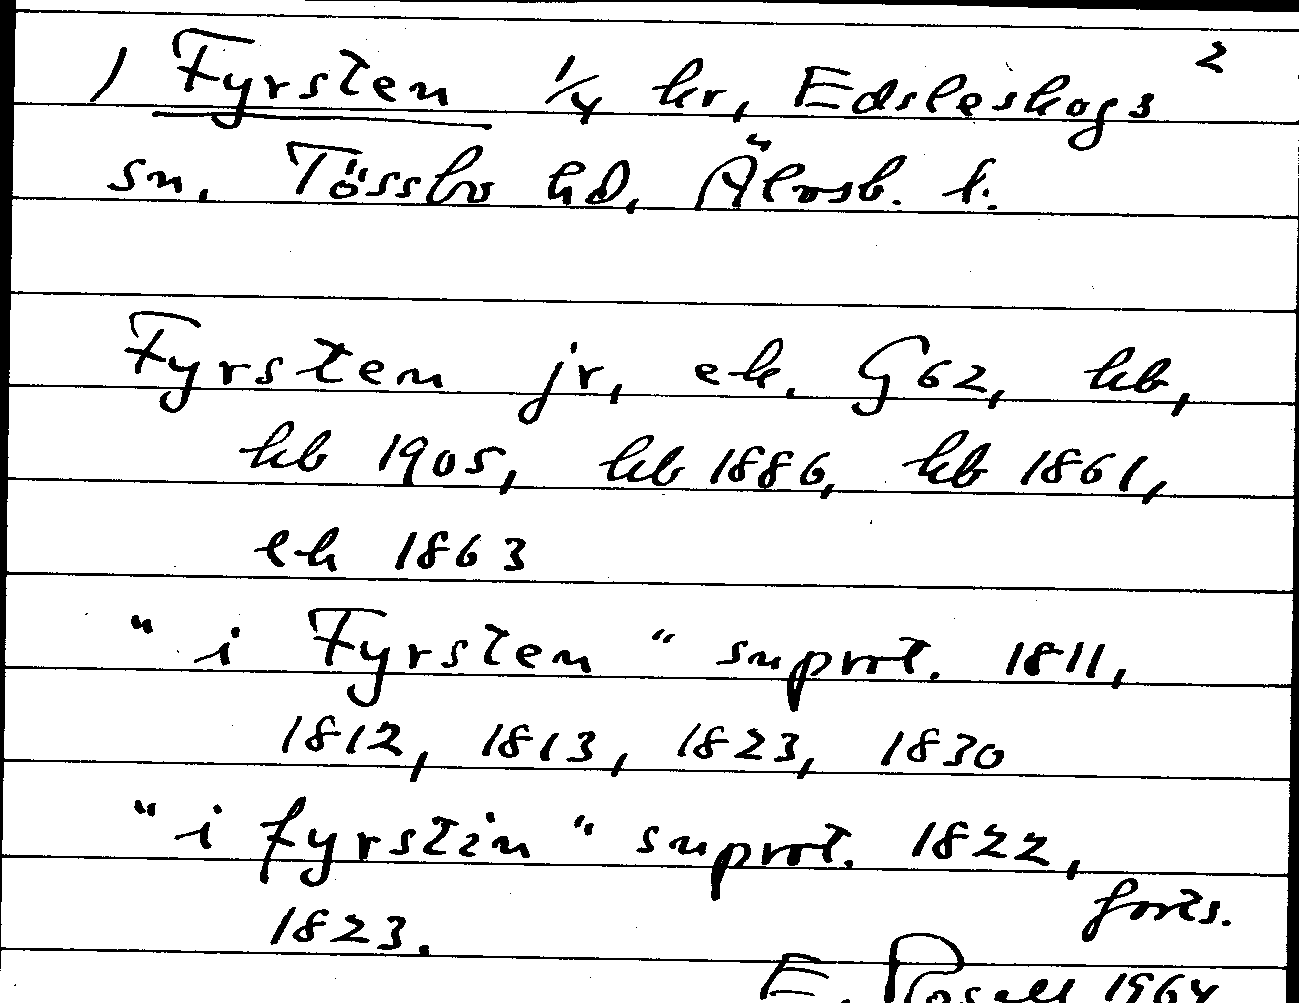 2
) Fyrsten 1/4 kr, Edsleskogs
sn, Tössbo hd, Älvsb. l.
Fyrsten jr, ek. G62, kb,
kb 1905, kb 1886, kb 1861,
ek 1863
"i Fyrsten" snprot. 1811,
1812, 1813, 1823, 1830
"i fyrstin" snprot. 1822,
1823.
forts.
E. Rosell 1964